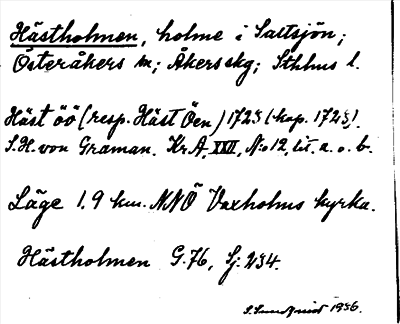 Hästholmen, holme i Saltsjön;
Österåkers sn; Åkers skg; Sthlms l.
Häst öö (resp. Häst Öen) 1725 (kop. 1725).
S.H. von Graman. KrA, XXII, No 12, lit. a. o. b.
Läge 1.9 km. NNÖ Vaxholms kyrka.
Hästholmen G.76, Sj: 234.
1936.